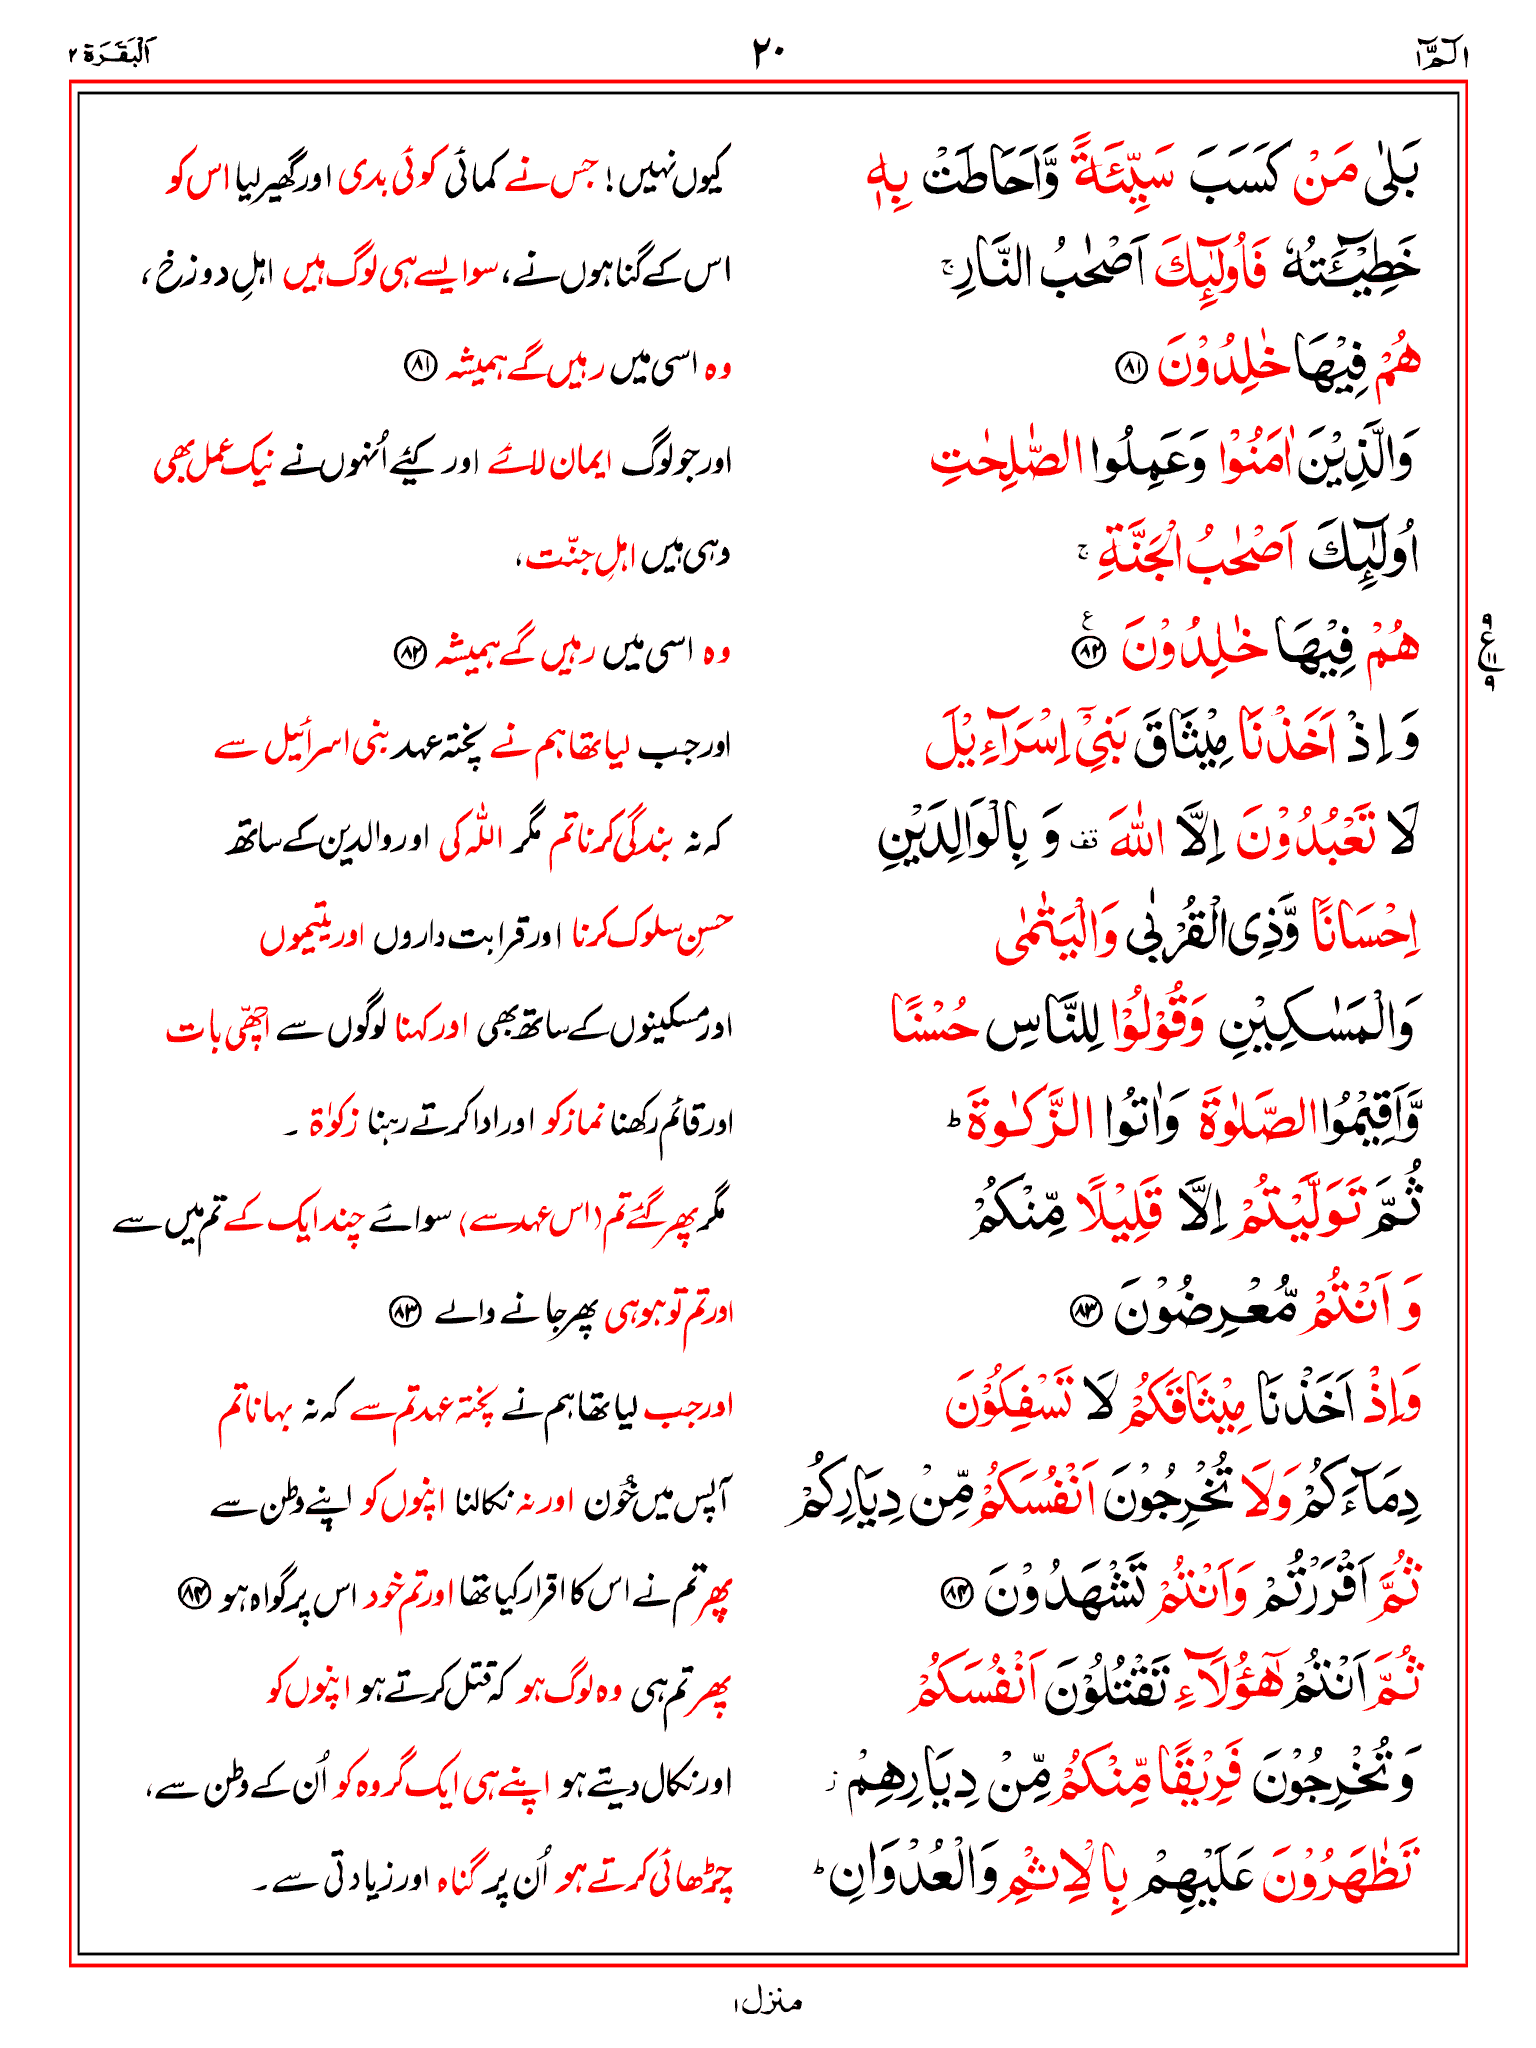 الٓمّٓ ۱ ۲۰ اَلْبَقَرَة ۲
بَلٰى مَنْ كَسَبَ سَيِّئَةً وَّاَحَاطَتْ بِهٖ کیوں نہیں! جس نے کمائی کوئی بدی اور گھیر لیا اس کو
خَطِيْٓـَٔتُهٗ فَاُولٰٓئِكَ اَصْحٰبُ النَّارِ ۚ اس کے گناہوں نے، سو ایسے ہی لوگ ہیں اہلِ دوزخ،
هُمْ فِيْهَا خٰلِدُوْنَ ۸۱ وہ اسی میں رہیں گے ہمیشہ ۸۱
وَالَّذِيْنَ اٰمَنُوْا وَعَمِلُوا الصّٰلِحٰتِ اور جو لوگ ایمان لائے اور کیۓ اُنہوں نے نیک عمل بھی
اُولٰٓئِكَ اَصْحٰبُ الْجَنَّةِ ۚ وہی ہیں اہلِ جنّت،
هُمْ فِيْهَا خٰلِدُوْنَ ۸۲ ع وہ اسی میں رہیں گے ہمیشہ ۸۲
۹ ع ۱۱ ۹
وَاِذْ اَخَذْنَا مِيْثَاقَ بَنِيْٓ اِسْرَآءِيْلَ اور جب لیا تھا ہم نے پختہ عہد بنی اسرائیل سے
لَا تَعْبُدُوْنَ اِلَّا اللّٰهَ قف وَ بِالْوَالِدَيْنِ کہ نہ بندگی کرنا تم مگر اللّٰہ کی اور والدین کے ساتھ
اِحْسَانًا وَّذِي الْقُرْبٰى وَالْيَتٰمٰى حسنِ سلوک کرنا اور قرابت داروں اور یتیموں
وَالْمَسٰكِيْنِ وَقُوْلُوْا لِلنَّاسِ حُسْنًا اور مسکینوں کے ساتھ بھی اور کہنا لوگوں سے اچھّی بات
وَّاَقِيْمُوا الصَّلٰوةَ وَاٰتُوا الزَّكٰوةَ ؕ اور قائم رکھنا نماز کو اور ادا کرتے رہنا زکوٰۃ ۔
ثُمَّ تَوَلَّيْتُمْ اِلَّا قَلِيْلًا مِّنْكُمْ مگر پھر گئے تم (اس عہد سے) سوائے چند ایک کے تم میں سے
وَ اَنْتُمْ مُّعْرِضُوْنَ ۸۳ اور تم تو ہو ہی پھر جانے والے ۸۳
وَاِذْ اَخَذْنَا مِيْثَاقَكُمْ لَا تَسْفِكُوْنَ اور جب لیا تھا ہم نے پختہ عہد تم سے کہ نہ بہانا تم
دِمَآءَكُمْ وَلَا تُخْرِجُوْنَ اَنْفُسَكُمْ مِّنْ دِيَارِكُمْ آپس میں خُون اور نہ نکالنا اپنوں کو اپنے وطن سے
ثُمَّ اَقْرَرْتُمْ وَاَنْتُمْ تَشْهَدُوْنَ ۸۴ پھر تم نے اس کا اقرار کیا تھا اور تم خود اس پر گواہ ہو ۸۴
ثُمَّ اَنْتُمْ هٰٓؤُلَآءِ تَقْتُلُوْنَ اَنْفُسَكُمْ پھر تم ہی وہ لوگ ہو کہ قتل کرتے ہو اپنوں کو
وَتُخْرِجُوْنَ فَرِيْقًا مِّنْكُمْ مِّنْ دِيَارِهِمْ ز اور نکال دیتے ہو اپنے ہی ایک گروہ کو اُن کے وطن سے،
تَظٰهَرُوْنَ عَلَيْهِمْ بِالْاِثْمِ وَالْعُدْوَانِ ؕ چڑھائی کرتے ہو اُن پر گناہ اور زیادتی سے۔
منزل ۱